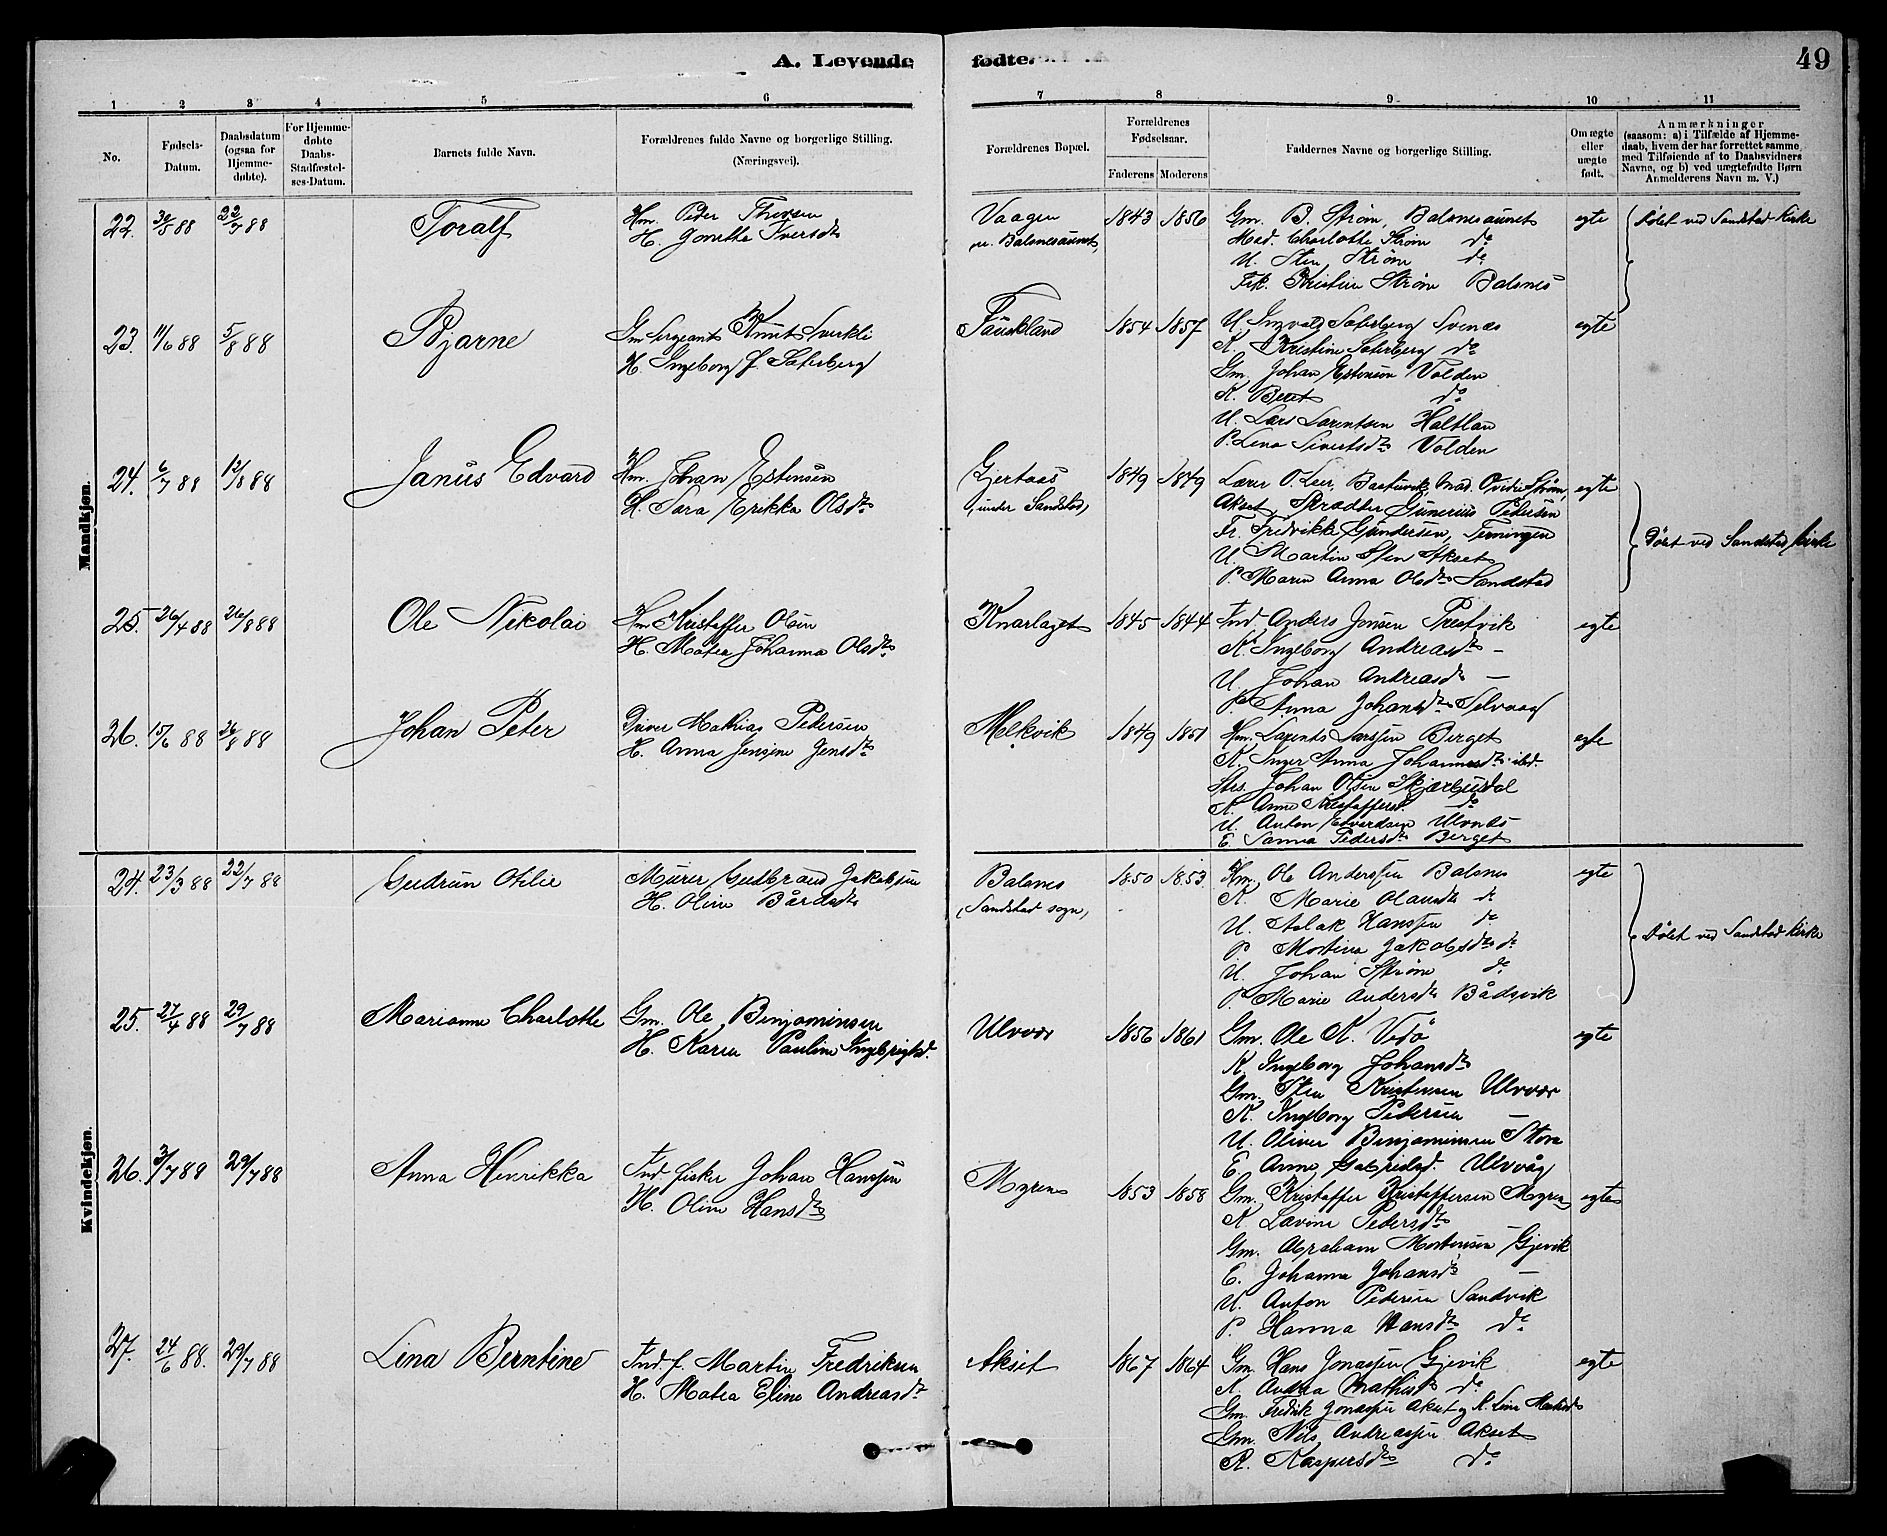 A. Levende fødte.
49
1 2 3 4 5 6 7 8 9 10 11
No.
Fødsels-Datum.
Daabsdatum (ogsaa for Hjemme-døbte).
For Hjemme-døbte Daabs-Stadfæstel-ses-Datum.
Barnets fulde Navn.
Forældrenes fulde Navne og borgerlige Stilling. (Næringsvei).
Forældrenes Bopæl.
Forældrenes Fødselsaar.
Faderens Moderens
Faddernes Navne og borgerlige Stilling.
Om ægte eller uægte født.
Anmærkninger (saasom: a) i Tilfælde af Hjemme-daab, hvem der har forrettet samme, med Tilføiende af to Daabsvidners Navne, og b) ved uægtefødte Børn Anmelderens Navn m. V.)
Mandkjøn.
22. 30/5 88 22/7 88 Toralf
Hm. Peder Thorsen
H. Gonetha Iversdtr
Vaagen
u. Balsnesaunet,
1843 1856
Gm. B. Strøm, Balsnesaunet
Mad. Charlotte Strøm do
U. Sten Strøm do
Frk. Kristine Strøm Balsnes
egte
Døbt ved Sandstad Kirke
23. 11/6 88 5/8 88 Bjarne
Gm Sergeant Knut Sverkli
H. Ingeborg f. Saterberg
Fauskland
1854 1857
U. Ingvald Saterberg Svenes
K. Kristine Saterberg do
Gm. Johan Estensen Volden
K. Beret do
U. Lars Larentsen Haltlan
P. Lena Sivertsdtr Volden
egte
24. 6/7 88 12/8 88 Janus Edvard
Hm. Johan Estensen
H. Sara Erikka Olsdtr
Gjertaas
(under Sandstad)
1849 1849
Lærer O. Leer, Bastuvik, Mad. Ovidie Strøm,
Akset, Gunerius Pedersen
Fr. Fredrikke Gundersen, Terningen
U. Martin Sten Akset
P. Maren Anna Olsdtr Sandstad
egte
Døbt ved Sandstad Kirke
25. 26/4 88 26/8 88 Ole Nikolai
Hm Kristoffer Olsen
H. Matea Johanna Olsdtr
Knarlaget
1845 1844
Ind Anders Jensen Præstvik
K. Ingeborg Andreasdtr —
U. Johan Andreasd —
P. Anna Johansdtr Selvaag
egte
26. 15/6 88 26/8 88 Johan Peter
Mathias Pedersen
H. Anna Jensine Jensdtr
Melkvik
1849 1851
Hm. Larents Larssen Berget
K. Inger Anna Johannesdtr ibd.
Johan Olsen Skjærbusdal
K. Anne Kristoffersd. do
U. Anton Edvardsen Ulvnes
E. Sanna Pedersdtr Berget
egte
Kvindekjøn.
24. 23/3 88 22/7 88 Gudrun Otilie
Murer Gudbrand Jakobsen
H. Oline Bårdsdtr
Balsnes
(Sandstad sogn)
1850 1853
Hm. Ole Anderssen Balsnes
K. Marie Olausdtr do
U. Aslak Hanssen do
P. Mortine Jakobsdtr do
U. Johan Strøm do
P. Marie Andersdtr Bådsvik
egte
Døbt ved Sandstad Kirke
25. 27/4 88 29/7 88 Marianne Charlotte
Gm. Ole Benjaminsen
H. Karen Pauline Ingebrigtsd.
Ulvvær
1856 1861
Gm. Ole K. Vedø
K. Ingeborg Johansdtr
Gm. Sten Kristensen Ulvvær
K. Ingeborg Pedersen —
U. Oliver Benjaminsen Storø
E. Anne Gabrielsd. Ulvvåg
egte
26. 3/7 88 29/7 88 Anna Henrikka
Ind. fisker Johan Hanssen
H. Oline Hansdtr
Myren
1853 1858
Gm. Kristoffer Kristoffersen Myren
K. Lavine Pedersdtr
Gm. Abraham Mortensen Gjevik
E. Johanna Johansdtr —
U. Anton Pedersen Sandvik
P. Hanna Hansdtr do
egte
27. 24/6 88. 29/7 88 Lina Berntine
Ind. f. Martin Fredriksen
H. Matea Eline Andreasdtr
Akset
1867 1864
Gm. Hans Jonassen Gjevik
K. Andrea Mathisdtr do
Gm. Fredrik Jonassen Akset og K. Line
Gm. Nils Andreassen Akset
K. Kaspersdtr do
egte